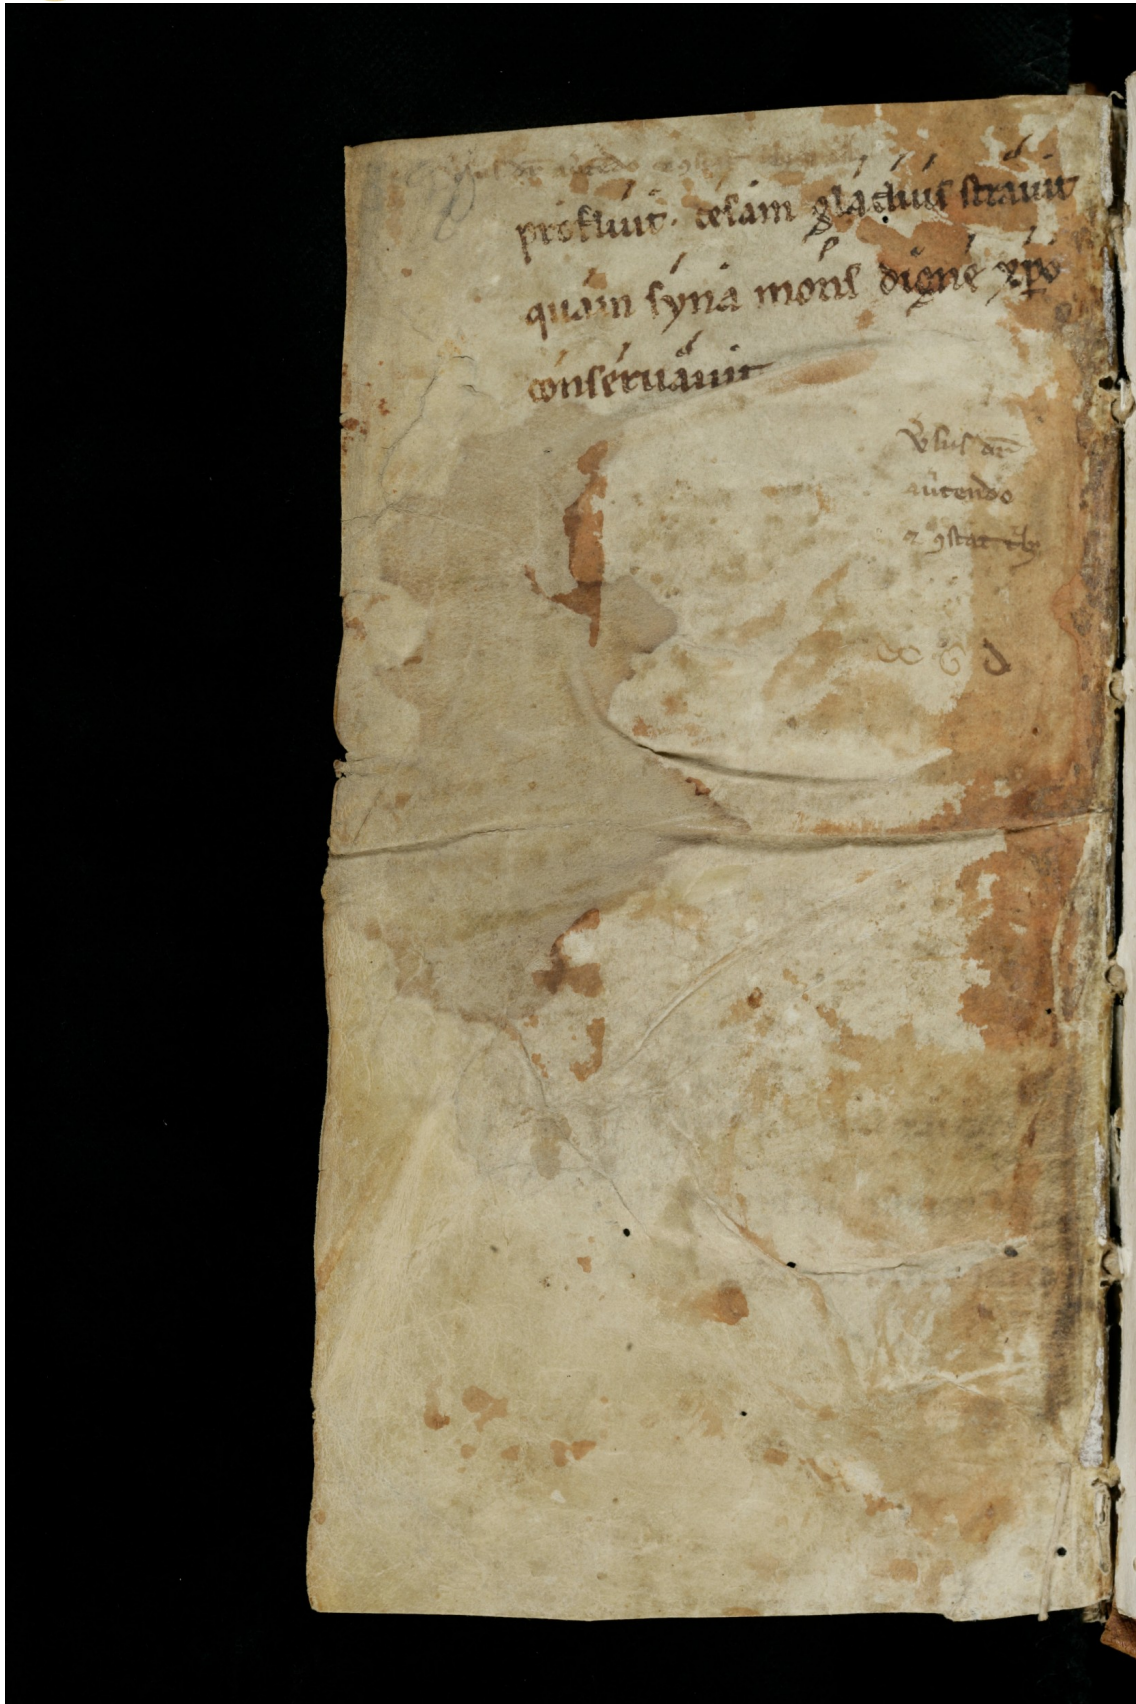 profluit. cesam gladius strauit
quam syna mons digne xp̄o
conseruauit
v̓sus ar̄
autendo
⁊ ꝯstat